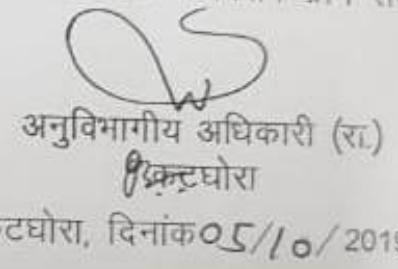 अनुविभागीय अधिकारी (रा.)
कटघोरा
टघोरा, दिनांक 05/10/2019